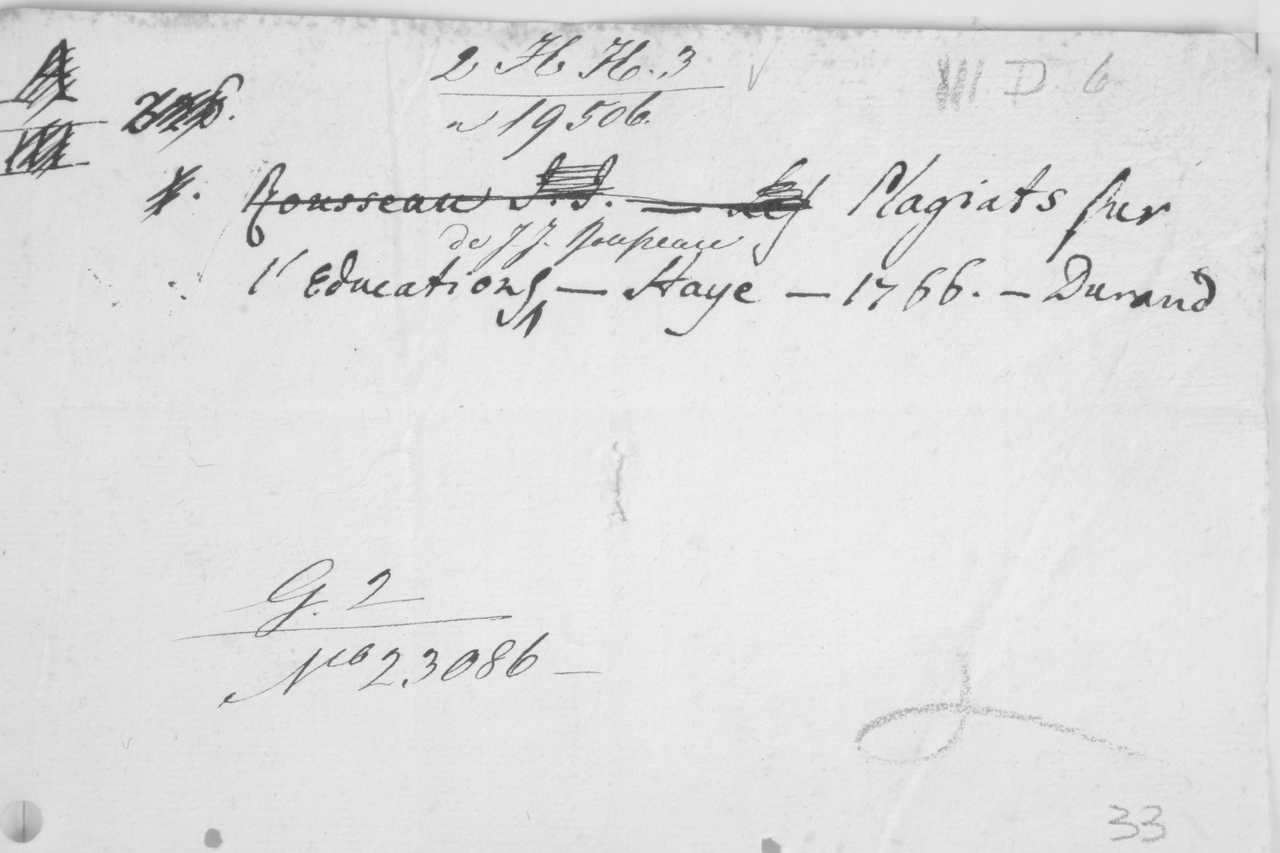 2 H H. 3
19506.
D. 6
Rousseau J.J. — Les Plagiats sur
de J J. Rousseau
l'Education, — Haye — 1766. — Durand
G. 2
No 23086 —
33